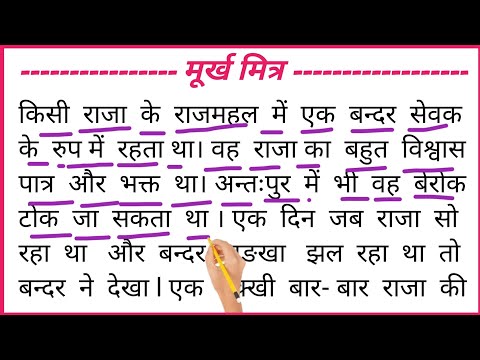 ---------------- मूर्ख मित्र ------------------
किसी राजा के राजमहल में एक बन्दर सेवक
के रुप में रहता था। वह राजा का बहुत विश्वास
पात्र और भक्त था। अन्तःपुर में भी वह बेरोक
टोक जा सकता था । एक दिन जब राजा सो
रहा था और बन्दर झल रहा था तो
बन्दर ने देखा । एक बार- बार राजा की